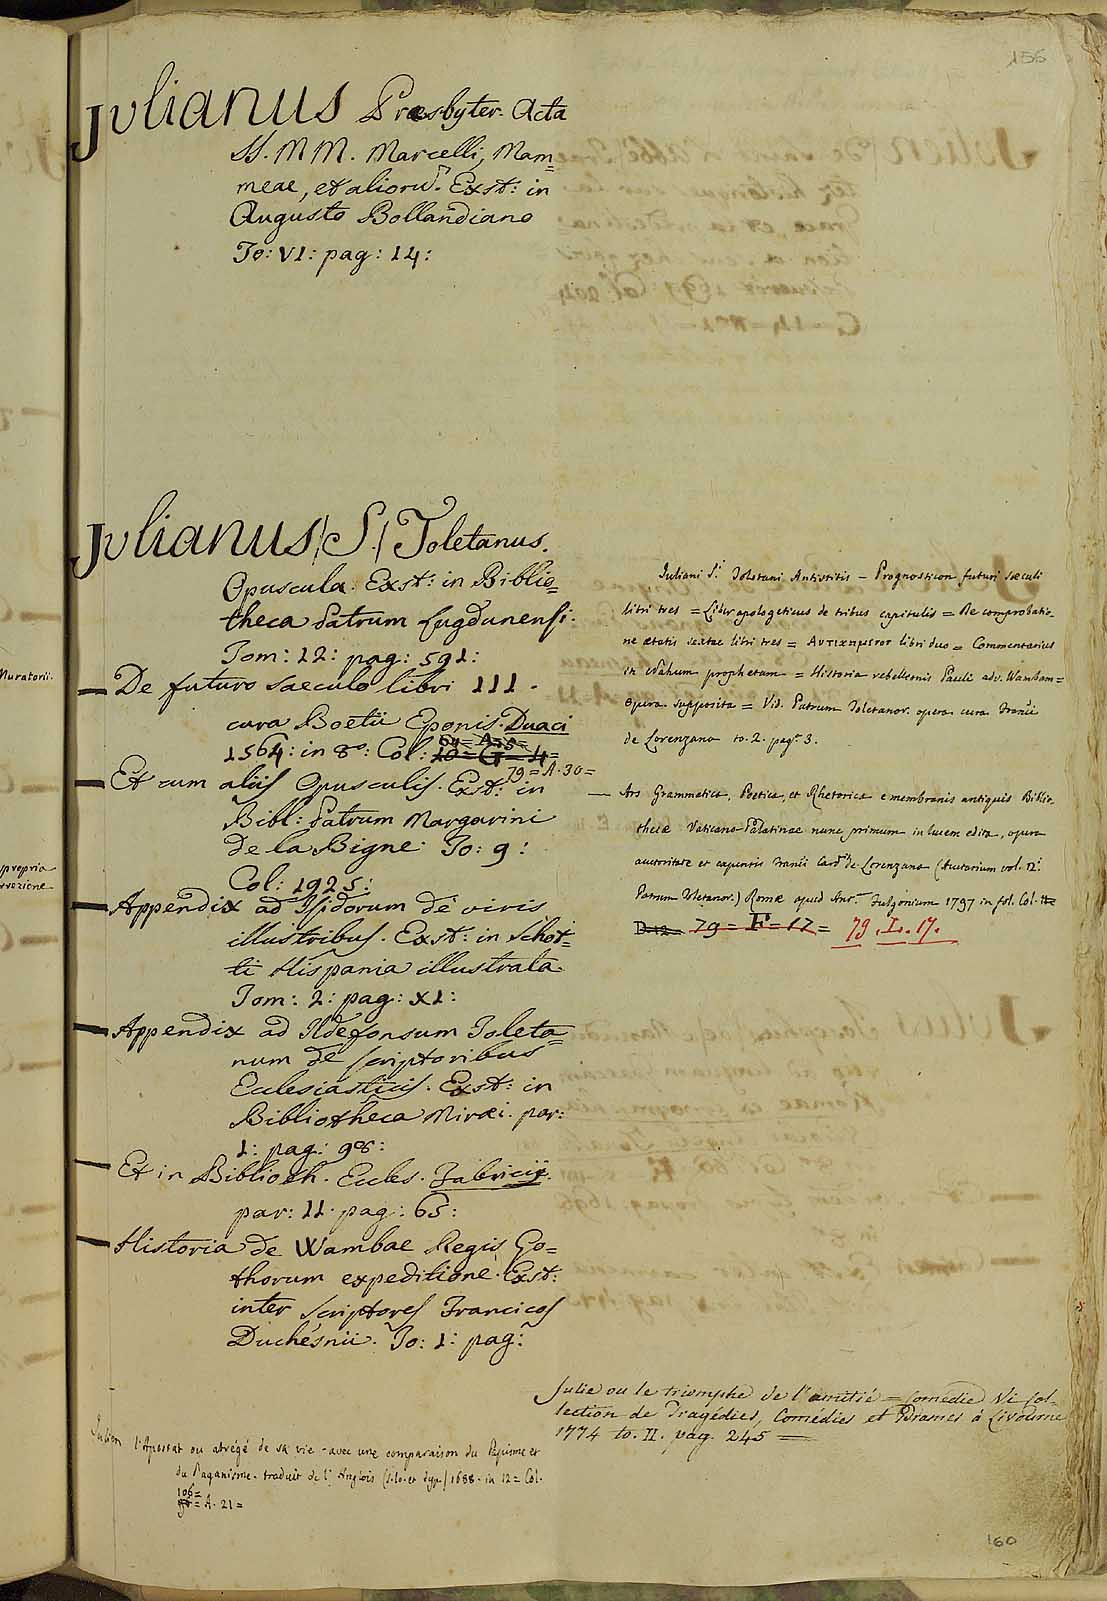 156
Julianus Præsbyter. Acta
SS. MM. Marcelli, Mam=
meae, et aliorũ. Exst: in
Augusto Bollandiano
To: VI: pag: 14:
Julianus /S./ Toletanus.
Opuscula. Exst: in Biblio=
theca Patrum Lugdunensi.
Tom: 12: pag: 591:
— De futuro saeculo libri III.
cura Boetii Eponis. Duaci
1564: in 8º: Col:
79 = A. 30 =
— Et cum aliis Opusculis. Exst: in
Bibl: Patrum Margarini
de la Bigne. To: 9:
Col: 1925:
— Appendix ad Isidorum de viris
illustribus. Exst: in Schot=
ti Hispania illustrata
Tom: 2: pag: XI:
— Appendix ad Ildefonsum Toleta=
num de scriptoribus
Ecclesiasticis. Exst: in
Bibliotheca Miræi. par:
1: pag: 98:
— Et in Biblioth. Eccles. Fabricii.
par: II. pag: 65:
— Historia de Wambae Regis Go=
thorum expeditione. Exst:
inter Scriptores Francicos
Duchesnii. To: 1: pag:
Julien l'Apostat ou abrégé de sa vie - avec une comparaison du Papisme et
du Paganisme. traduit de l'Anglois (s. lo. et typ.) 1688. in 12 = Col.
106 =
= A. 21 =
Juliani S.i Toletani Antistitis - Prognosticon futuri sæculi
libri tres = Liber apologeticus de tribus capitulis = De comprobatio-
ne ætatis sextae libri tres = Αντικειμενον libri duo = Commentarius
in Nahum prophetam = Historia rebellionis Pauli adv. Wambam =
Opera supposita = Vid. Patrum Toletanor. opera cura Francii
de Lorenzana to. 2. pag. 3.
— Ars Grammatica, Poetica, et Rhetorica e membranis antiquis Biblio-
thecæ Vaticano-Palatinae nunc primum in lucem edita, opera
auctoritate et expensis Francii Card. de Lorenzana (Auctarium vol. 12.
Patrum Toletanor.) Romæ apud Ant. Fulgonium 1797 in fol. Col.
79 = F = 17 = 79. L. 17.
Julie ou le triomphe de l'amitié = Comédie Vi Col-
lection de Tragédies, Comédies et Drames à Livourne
1774 to. II. pag. 245 =
160
Muratorii.
propria